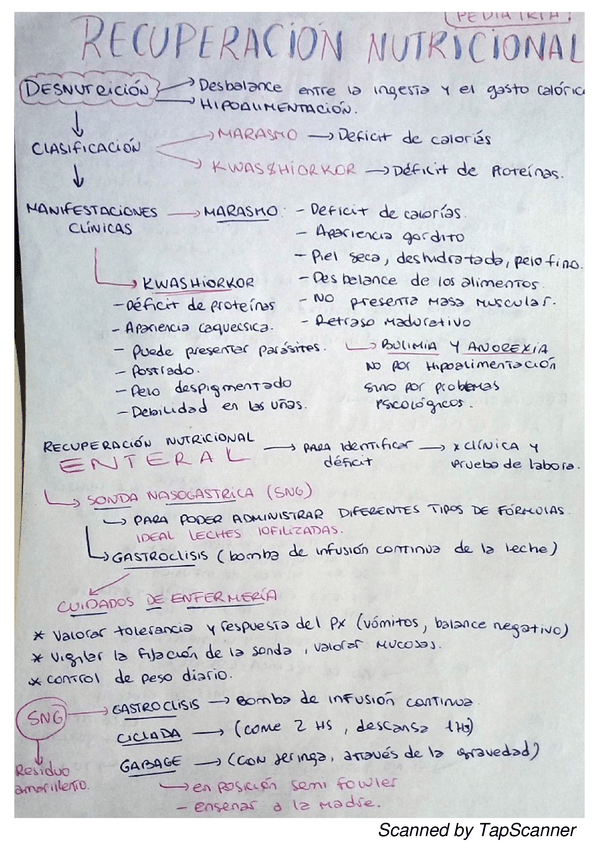 PEDIATRIA.
RECUPERACIÓN NUTRICIONAL
DESNUTRICIÓN → Desbalance entre la ingesta y el gasto calóric
→ HIPOALIMENTACIÓN.
CLASIFICACIÓN → MARASMO → Déficit de calorías
→ KWASSHIORKOR → Déficit de Proteínas.
MANIFESTACIONES CLÍNICAS → MARASMO: - Déficit de calorías.
- Apariencia gordito
- Piel seca, deshidratada, pelo fino.
- Desbalance de los alimentos.
- NO presenta masa muscular.
- Retraso madurativo
→ KWASHIORKOR
- Déficit de proteínas
- Apariencia caquecsica.
- Puede presentar parásites.
- Postrado.
- Pelo despigmentado
- Debilidad en las uñas.
→ BULIMIA Y ANOREXIA
NO por Hipoalimentación
sino por problemas
psicológicos.
RECUPERACIÓN NUTRICIONAL
ENTERAL → PARA identificar déficit → x clínica y prueba de labora.
→ SONDA NASOGASTRICA (SNG)
→ PARA PODER ADMINISTRAR DIFERENTES TIPOS DE FÓRMULAS.
IDEAL LECHES IOFILIZADAS.
→ GASTROCLISIS (bomba de infusión continua de la leche)
CUIDADOS DE ENFERMERÍA
* Valorar tolerancia y respuesta del Px (vómitos, balance negativo)
* Vigilar la fijación de la sonda, valorar mucosas.
* control de peso diario.
SNG → GASTROCLISIS → Bomba de infusión continua.
CICLADA → (come 2 HS, descansa 1HS)
GABAGE → (con jeringa, através de la gravedad)
→ en posición semi fowler
- enseñar a la madre.
Residuo
amarillento.
Scanned by TapScanner